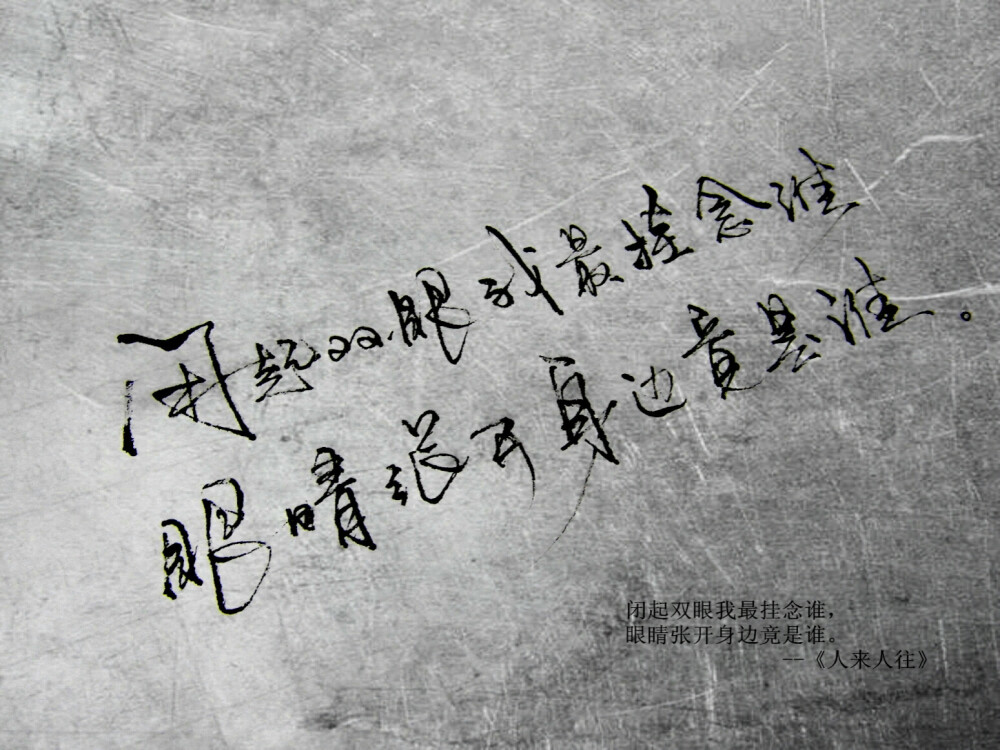 闭起双眼我最挂念谁
眼睛张开身边竟是谁。
闭起双眼我最挂念谁，
眼睛张开身边竟是谁。
—《人来人往》